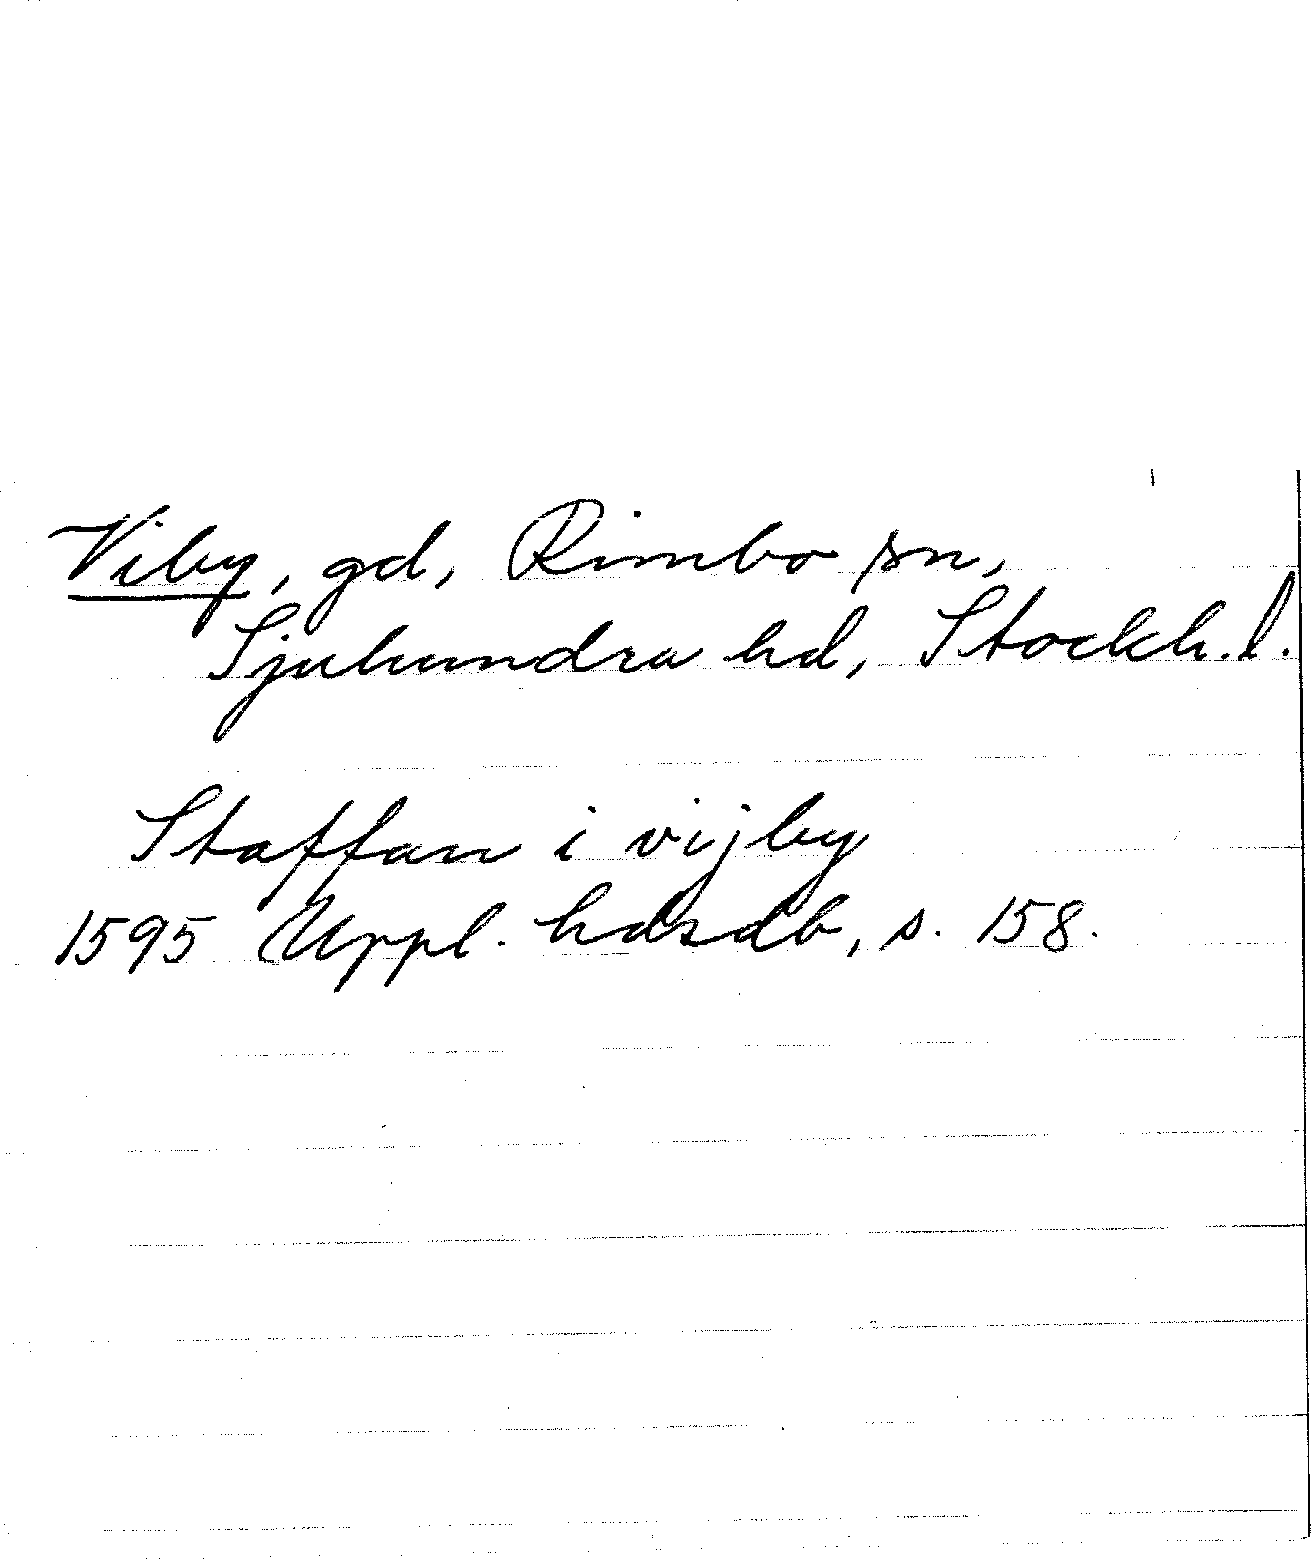 Viby, gd, Rimbo sn,
Sjuhundra hd, Stockh. l.
Staffan i vijby
1595 Uppl. hdsdb, s. 158.